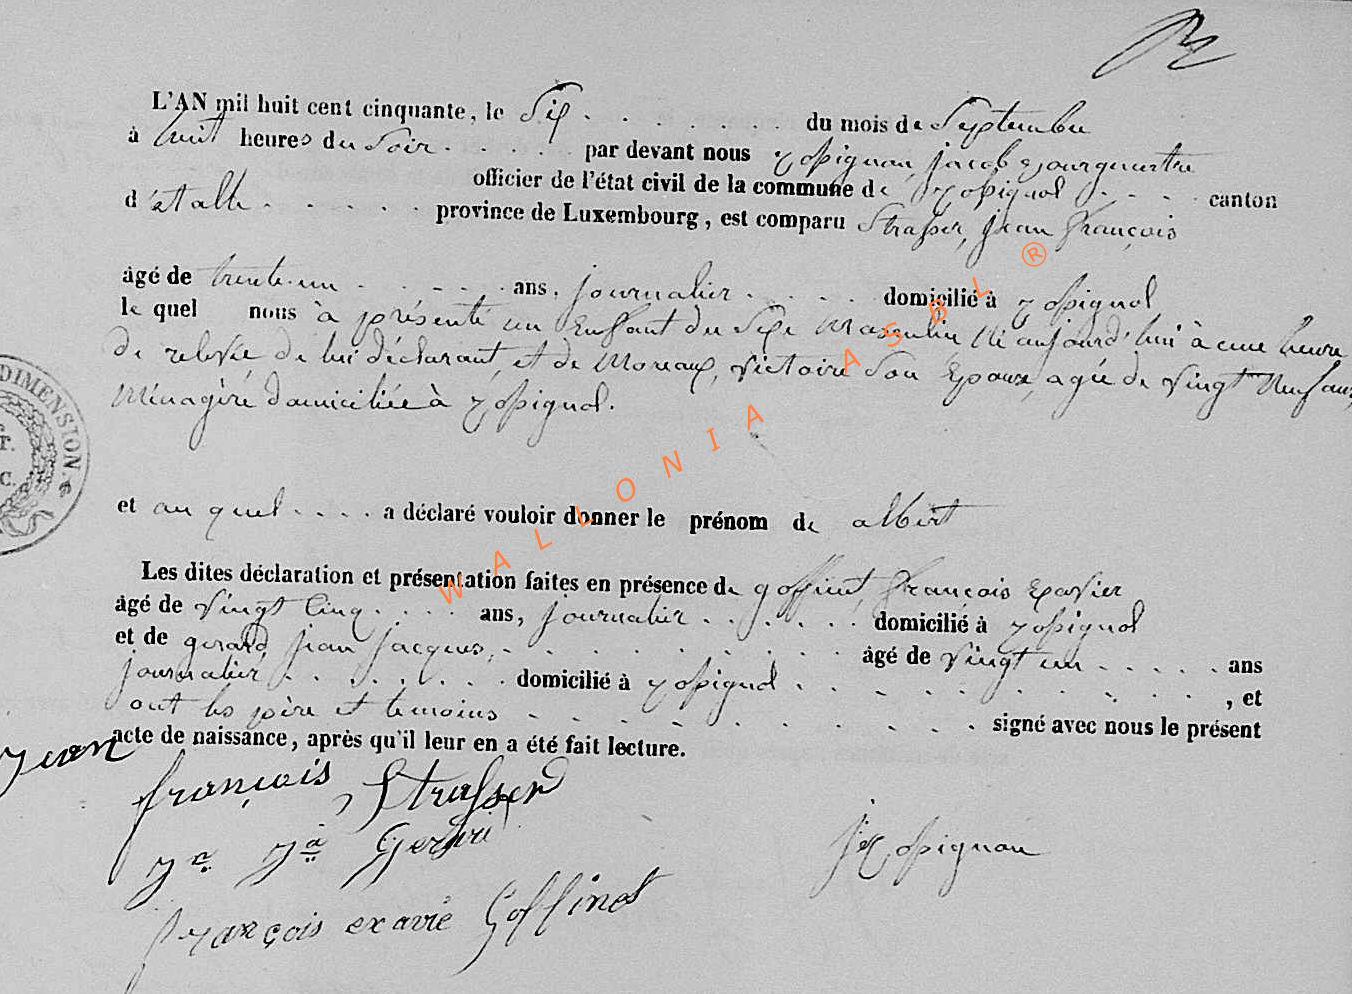 L'AN mil huit cent cinquante, le Six . . . . . . . du mois de Septembre
à huit heures du Soir . . . . . par devant nous jacob
officier de l'état civil de la commune de . . . . canton
d'étalle . . . . . province de Luxembourg, est comparu Strasser, jean François
âgé de trente-un . . . . . ans, journalier . . . . domicilié à
le quel nous à présenté un Enfant du Sexe Masculin Né aujourd'hui à une heure
de relevée de lui déclarant, et de Moreaux, victoire Son Epouse, agée de vingt Neuf ans,
Ménagère domiciliée à
et au quel . . . . a déclaré vouloir donner le prénom de albert
Les dites déclaration et présentation faites en présence de goffinet, François Exavier
âgé de vingt Cinq . . . . ans, journalier . . . . . . domicilié à
et de gerard, jean jacques, . . . . . . . . . . . âgé de vingt un . . . . . ans
journalier . . . . . . . . domicilié à . . . . . . . . . . . , et
ont les père et temoins . . . . . . . . . . signé avec nous le présent
acte de naissance, après qu'il leur en a été fait lecture.
jean françois Strasser
françois exavié Goffinet
DIMENSION.
WALLONIA ASBL ®